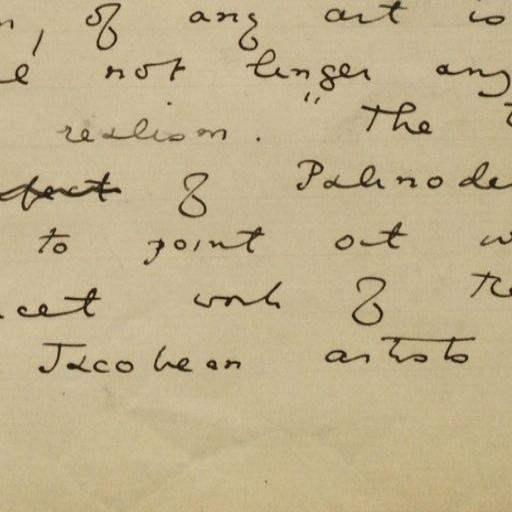 , of any art is
not linger any
realism." The
of Palinode
to point out
work of
Jacobean artists